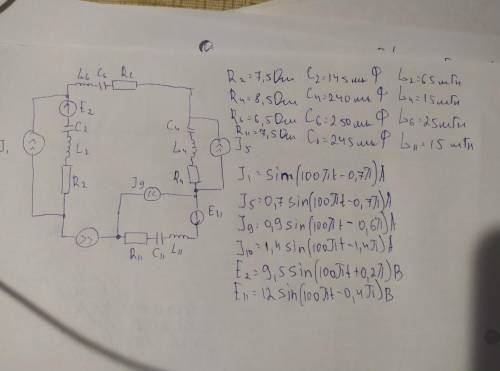 L₆ C₆ R₆
E₂
C₂
L₂
R₂
J₁
C₄
L₄
R₄
J₅
J₉
E₁₁
R₁₁ C₁₁ L₁₁
R₂=7,5Ом C₂=145мкФ L₂=65мГн
R₄=8,5Ом C₄=240мкФ L₄=15мГн
R₆=6,5Ом C₆=250мкФ L₆=25мГн
R₁₁=7,5Ом C₁₁=245мкФ L₁₁=15мГн
J₁=sin(100πt-0,7π)A
J₅=0,7sin(100πt-0,7π)A
J₉=0,9sin(100πt-0,6π)A
J₁₀=1,4sin(100πt-1,4π)A
E₂=9,5sin(100πt+0,2π)В
E₁₁=12sin(100πt-0,4π)В